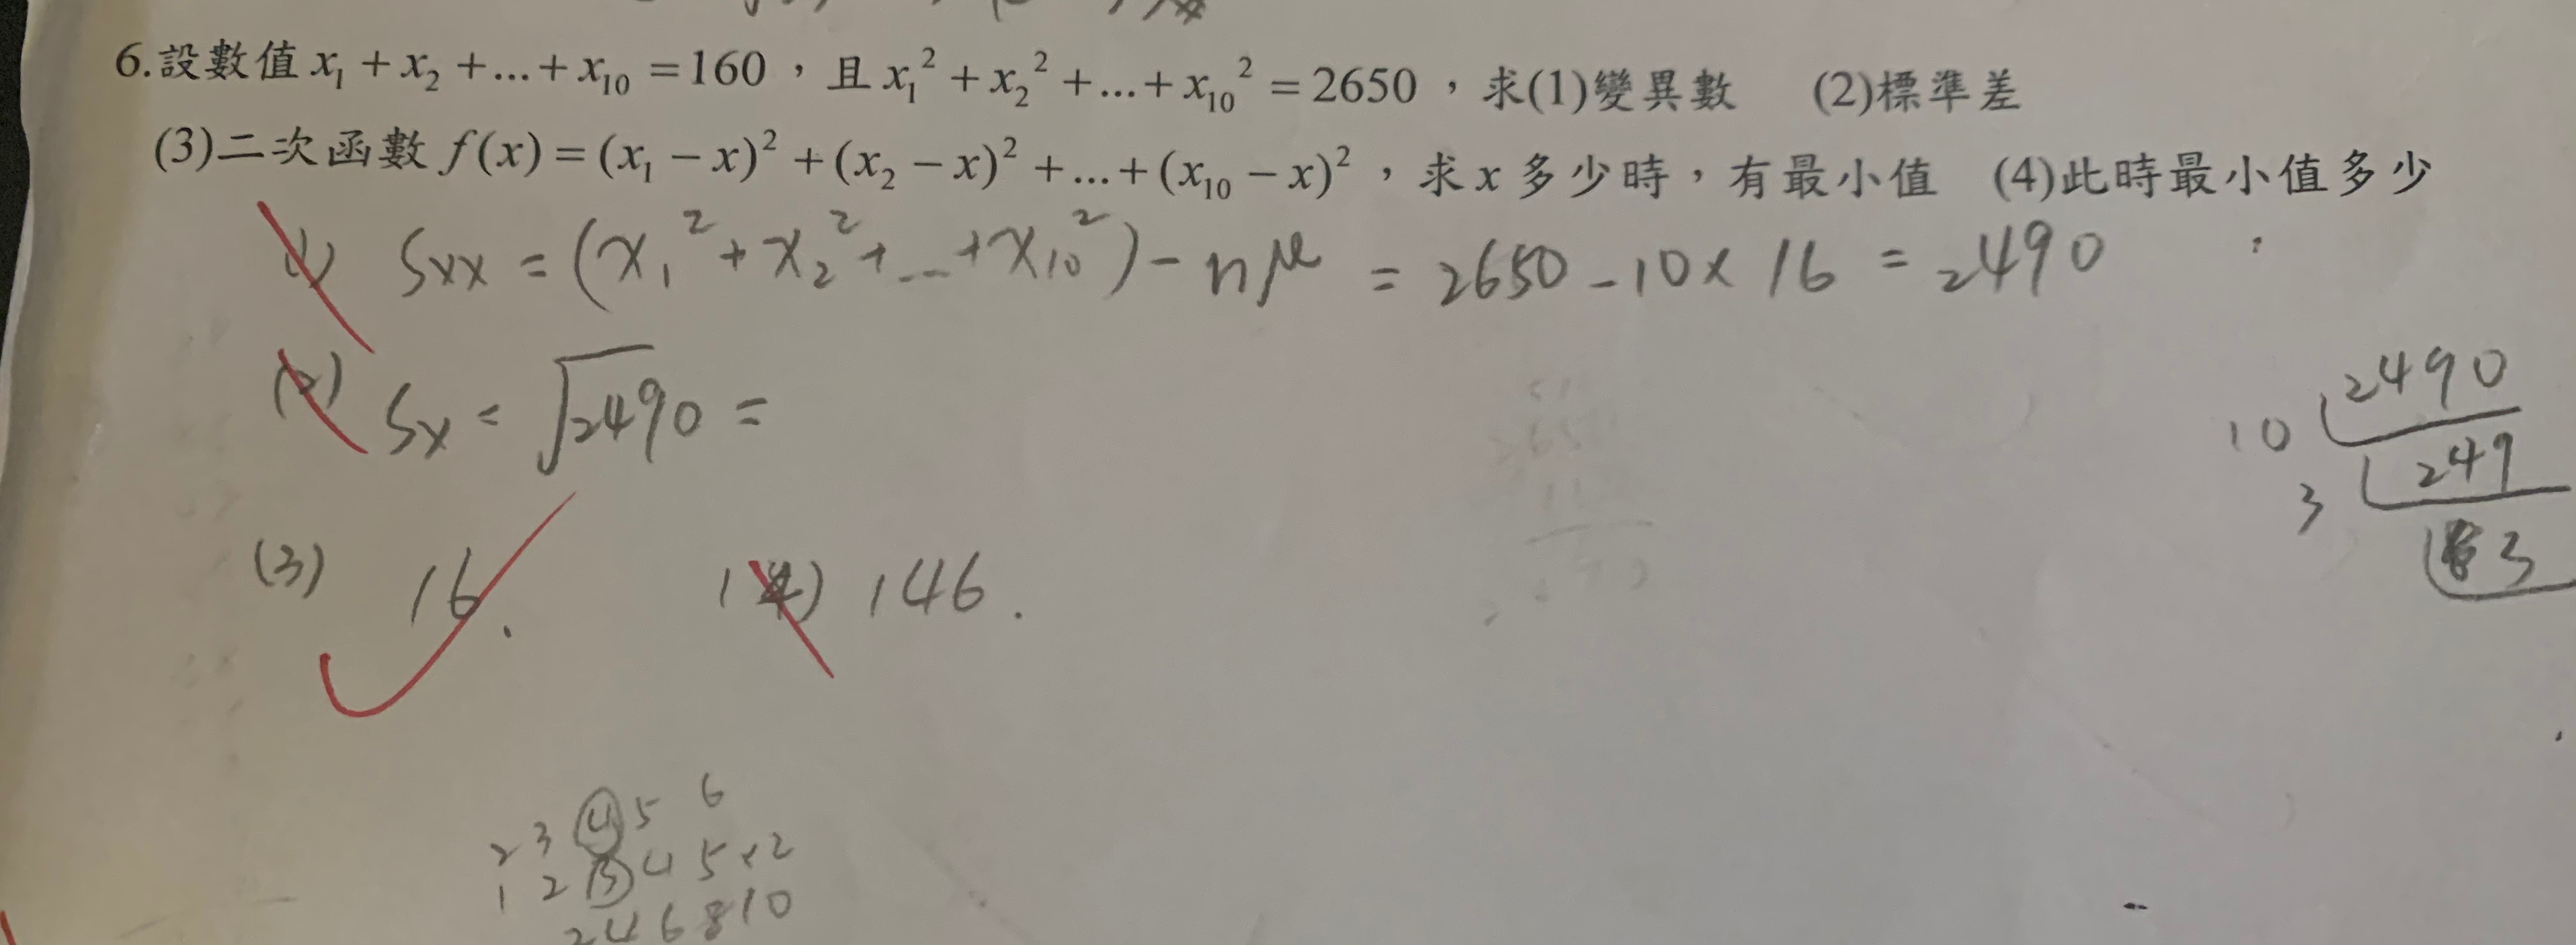 6.設數值 x₁ + x₂ +...+ x₁₀ = 160，且 x₁² + x₂² +...+ x₁₀² = 2650，求(1)變異數 (2)標準差
(3)二次函數 f(x) = (x₁ − x)² + (x₂ − x)² +...+ (x₁₀ − x)²，求 x 多少時，有最小值 (4)此時最小值多少
(1) Sxx = (x₁² + x₂² + ... + x₁₀²) − nμ = 2650 − 10 × 16 = 2490
(2) Sx = √2490 =
10 2490
3 249
83
(3) 16. (4) 146.
2 3 4 5 6
1 2 3 4 5 × 2
2 4 6 8 10